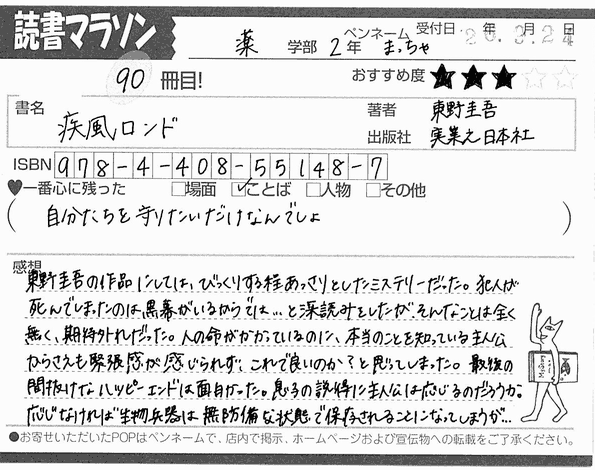 読書マラソン
薬 学部 2年 ペンネーム まっちゃ 受付日 年 月 日
90 冊目!
おすすめ度 ★★★☆☆
書名 疾風ロンド
著者 東野圭吾
出版社 実業之日本社
ISBN 978-4-408-55148-7
♥一番心に残った □場面 ☑ことば □人物 □その他
( 自分たちを守りたいだけなんでしょ )
感想
東野圭吾の作品にしては、びっくりする程あっさりとしたミステリーだった。犯人が
死んでしまったのは黒幕がいるからでは…と深読みをしたが、そんなことは全く
無く、期待外れだった。人の命がかかっているのに、本当のことを知っている主人公
からさえも緊張感が感じられず、これで良いのか?と思ってしまった。最後の
間抜けなハッピーエンドは面白かった。息子の説得に主人公は応じるのだろうか。
応じなければ生物兵器は無防備な状態で保存されることになってしまうが…
●お寄せいただいたPOPはペンネームで、店内で掲示、ホームページおよび宣伝物への転載をご了承ください。